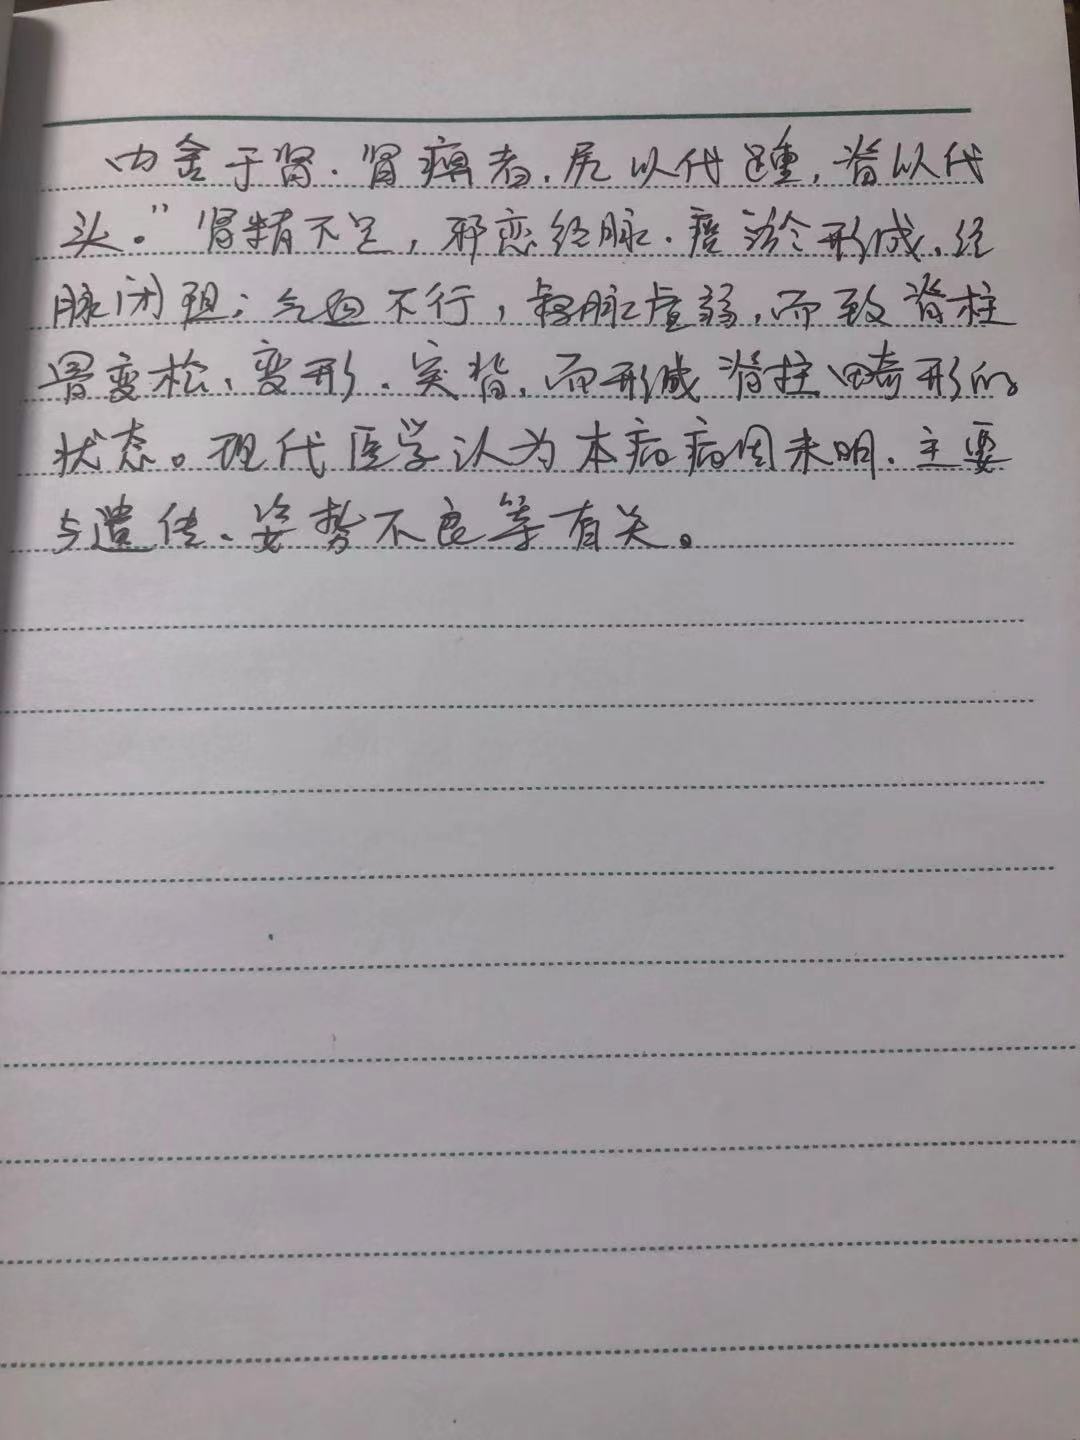 内舍于肾.肾痹者.尻以代踵,脊以代
头。”肾精不足,邪恋经脉.瘀形成、经
脉闭阻;气血不行,督脉虚弱.而致脊柱
骨变松、变形.突背.而形成脊柱畸形的
状态。现代医学认为本病病因未明.主要
与遗传、姿势不良等有关。